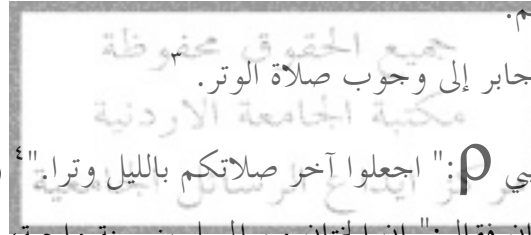 م.
جميع الحقوق محفوظة
جابر إلى وجوب صلاة الوتر.٣
مكتبة الجامعة الاردنية
ي ρ:" اجعلوا آخر صلاتكم بالليل وترا."٤
مركز ايداع الرسائل الجامعية